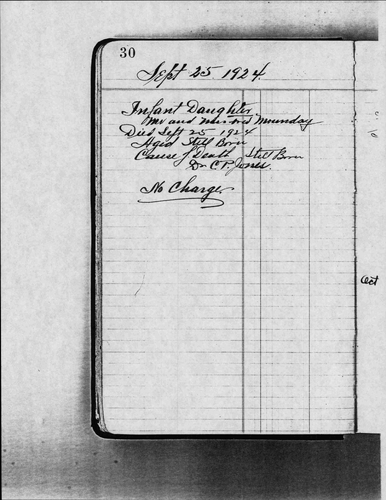 30
Sept 25 1924.
Infant Daughter
Mr and Mrs Munday
Died Sept 25 1924
Aged Still Born
Cause of Death Still Born
Dr C. P. Jones.
No Charge
Oct